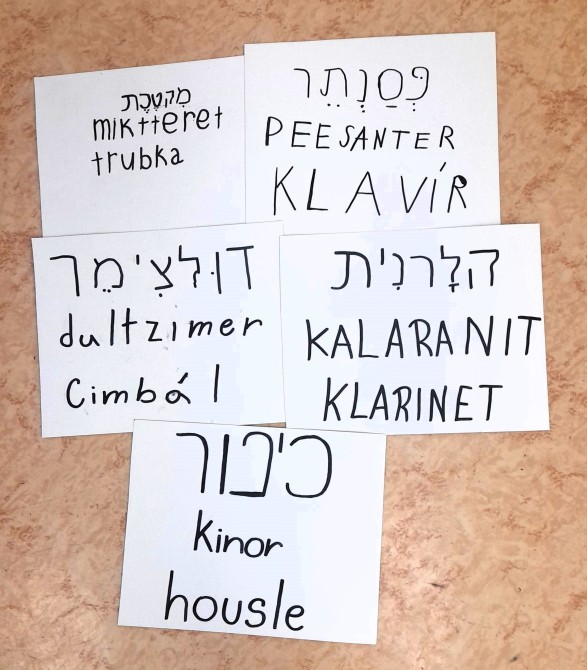 מִקטֶכֶת
miktteret
trubka
פְּסַנָתֵר
PEESANTER
KLAVÍR
דוּלצִ'מֵר
dultzimer
Cimbál
הלָרנִית
KALARANIT
KLARINET
כינור
kinor
housle